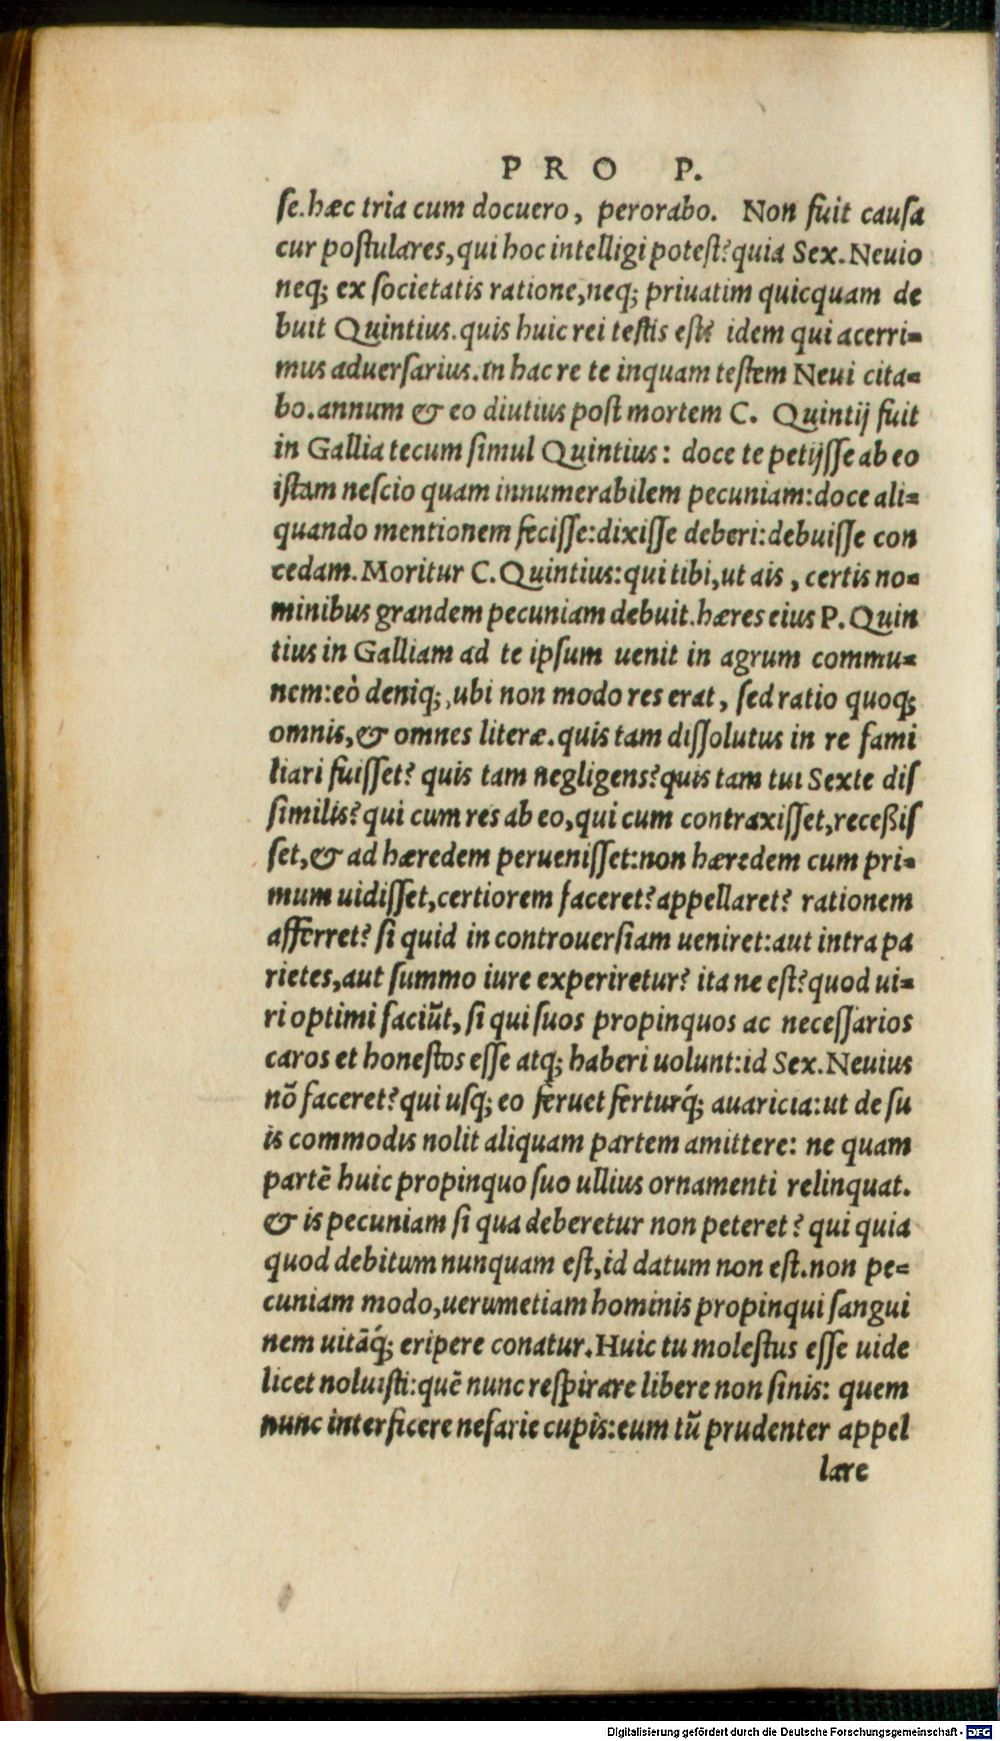 PRO P.
ſe.hæc tria cum docuero, perorabo. Non fuit cauſa
cur poſtulares,qui hoc intelligi poteſt?quia Sex.Neuio
neq; ex ſocietatis ratione,neq; priuatim quicquam de
buit Quintius.quis huic rei teſtis eſt? idem qui acerri=
mus aduerſarius.in hac re te inquam teſtem Neui cita=
bo.annum & eo diutius poſt mortem C. Quintij fuit
in Gallia tecum ſimul Quintius: doce te petijſſe ab eo
iſtam neſcio quam innumerabilem pecuniam:doce ali=
quando mentionem feciſſe:dixiſſe deberi:debuiſſe con
cedam.Moritur C.Quintius:qui tibi,ut ais, certis no=
minibus grandem pecuniam debuit.hæres eius P.Quin
tius in Galliam ad te ipſum uenit in agrum commu=
nem:eò deniq;,ubi non modo res erat, ſed ratio quoq;
omnis,& omnes literæ.quis tam diſſolutus in re fami
liari fuiſſet? quis tam negligens?quis tam tui Sexte diſ
ſimilis? qui cum res ab eo,qui cum contraxiſſet,receßiſ
ſet,& ad hæredem perueniſſet:non hæredem cum pri=
mum uidiſſet,certiorem faceret?appellaret? rationem
afferret? ſi quid in controuerſiam ueniret:aut intra pa
rietes,aut ſummo iure experiretur? ita ne eſt?quod ui=
ri optimi faciūt, ſi qui ſuos propinquos ac neceſſarios
caros et honeſtos eſſe atq; haberi uolunt:id Sex.Neuius
nō faceret?qui uſq; eo feruet ferturq́; auaricia:ut de ſu
is commodis nolit aliquam partem amittere: ne quam
partē huic propinquo ſuo ullius ornamenti relinquat.
& is pecuniam ſi qua deberetur non peteret? qui quia
quod debitum nunquam eſt,id datum non eſt.non pe=
cuniam modo,uerumetiam hominis propinqui ſangui
nem uitāq́; eripere conatur.Huic tu moleſtus eſſe uide
licet noluiſti:quē nunc reſpirare libere non ſinis: quem
nunc interficere nefarie cupis:eum tū prudenter appel
lare
Digitalisierung gefördert durch die Deutsche Forschungsgemeinschaft - DFG